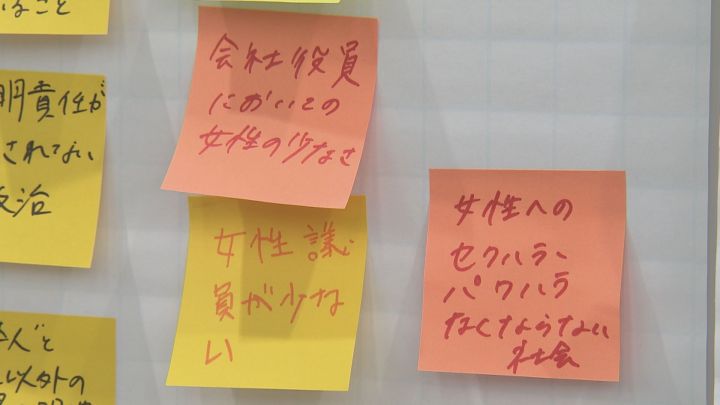 いること
明責任が
されてない
政治
人と
以外の
会社役員
においての
女性の少なさ
女性議
員が少な
い
女性への
セクハラ、
パワハラ
なくならない
社会